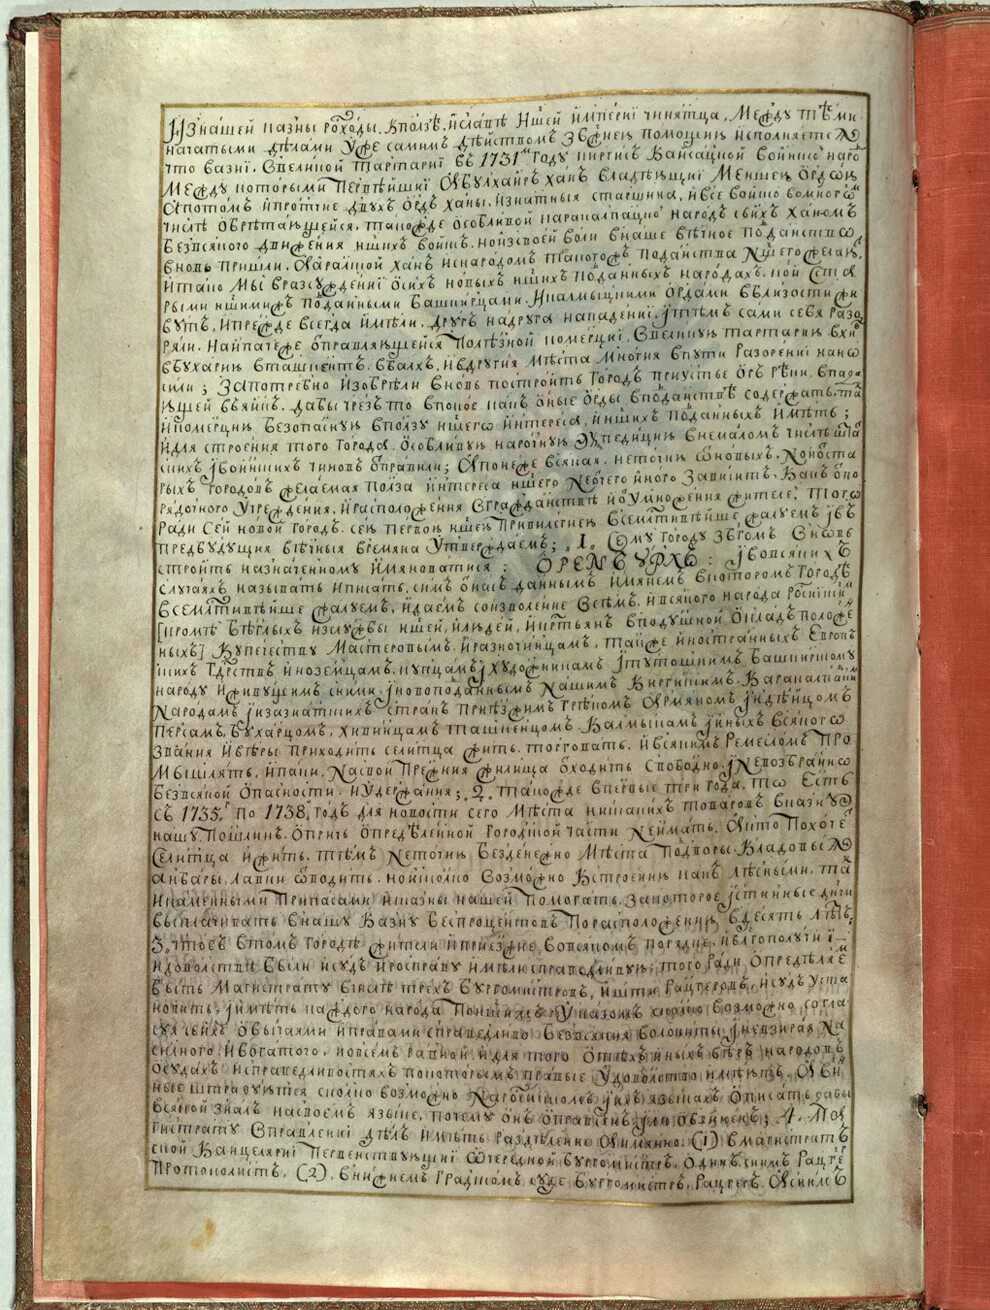 изнашей казны росходы, кползѣ, иславѣ Ншей имперіи чинятца, Между тѣми
начатыми дѣлами уже самимъ дѣйствомъ зВжиею помощию исполняется
что вазиі, ввеликой тартаріи въ 1731м году киргисъ Кайсацкой воинско наро
Между которыми Первѣйшиі Абулхаиръ ханъ владѣющиі Меншею Ордою,
Апотомъ ипротчие двухъ Ордъ ханы, изнатныя старшина, ивсе воиско вомногом
числѣ обрѣтающейся, такожде особливой каракалпацко народъ сихъ ханомъ
безвсякого движения нших воискъ, ноизсвоей воли внаше вѣчное подданство
вновь пришли. Ааралской ханъ иснародомъ такогожъ подданства Ншего желаю,
итако мы вразсужденіи осихъ новыхъ нших подданныхъ народахъ, кои Ста
рыми ншимижъ подданными башкирцами, икалмыцкими ордами вблизости жи
вутъ, ипрежде всегда имѣли, другъ надруга нападениі, ітѣмъ сами себя разо
ряли. Наипачеже оправляющейся полѣзной комерциі, ввеликую тартарию вхи
ввухарию вташкентъ, вбалхъ, ивдругия мѣста Многия впути разорениі нано
сили; запотребно изобрѣли вновь построить городъ приустье Орь рѣки, впада
ющей вяикъ, дабы чрезъ то впокое какъ оные орды вподданствѣ содержать, та
икомерцию безопасную вползу ншего интереса, инших подданныхъ имѣть;
идля строения того города, особливую нарочную экспедицию внемаломъ числѣ шта
скихъ івоинских чиновъ оправили; Апонеже всякая, нетокмо оновыхъ, ноиоста
рыхъ городовъ желаемая полза интереса ншего Неотчего иного зависитъ, какъ опо
рядочного учреждения, ирасположения вгражданствѣ иоумножения жителе, того
ради Сей новой городъ, сею первою ншею привилегиею всемлтивѣйше жалуемъ івъ
предбудущия вѣчныя времяна утверждаемъ; 1. Сему городу зВгомъ вновь
строить назначенному имяноватися: ОРЕНБУРХЪ: івовсякихъ
случаяхъ называть иписать, симъ онасъ даннымъ имянемъ вкоторомъ городѣ
всемлтивѣйше жалуемъ, идаемъ соизволение всѣмъ, ивсякого народа россиски
[кромѣ бѣглыхъ изслужбы ншей, илюдей, икртьянъ вподушной окладъ положе
ныхъ] купечеству мастеровымъ, иразночинцамъ, также иностранныхъ европе
скихъ Гдрствъ иноземцамъ, купцамъ іхудожникамъ ітутошнимъ башкирскому
народу иживущимъ сними, іновоподданнымъ нашимъ киргискимъ, каракалпаки
народамъ іизазиатских странъ приѣзжимъ грѣкомъ армяномъ індѣицомъ
персамъ, бухарцомъ, хивинцамъ ташкенцомъ, калмыкамъ іиныхъ всякого
звания ивѣры приходить селитца жить, торговать, ивсякимъ ремесломъ про
мышлять, ипаки, насвои прежния жилища отходить свободно, іневозбранно
безвсякой опасности, иудержания; 2. такожде впервые три года, то есть
съ 1735г по 1738 годъ для новости сего мѣста никакихъ товаровъ вказну
нашу, пошлинъ, опричь опредѣленной городской части неимать. Акто похоче
селитца ижить, тѣмъ нетокмо безденежно мѣста подворы, кладовыя
анбары, лавки отводить, ноисколко возможно кстроению какъ лѣсными, та
икаменными припасами исказны нашей помогать, закоторое істинные дни
выплачивать внашу казну беспроцентовъ порасположению вдесять лѣтъ,
3, чтобъ втомъ городѣ жители иприезжие вовсякомъ порядке, ивблгополучиі
идоволствѣ были исудъ иросправу имѣли справедливую; того ради опредѣляе
быть магистрату вчислѣ трехъ бургомистровъ, ишти рацгеровъ, исудъ уста
новить, імѣть каждого народа поншимъ указомъ сколко возможно согла
суя сихъ обычаями иправами справедливо, безвсякия волокиты, іневзирая на
силного ибогатого, новсемъ равной, идля того отѣхъ иныхъ вѣръ народовъ
осудахъ исправедливостяхъ покоторымъ правые удоволство имѣютъ, Аві
ные штрафуются сколко возможно
всякой зналъ насвоемъ языке, почему онъ оправленъ іли обвиненъ; 4.
гистрату вправлениі дѣлъ имѣть разделение аимянно: (1) вмагистрат
ской канцеляриі первенствующиі очередной бургомистръ, одинъ снимъ рацге
протоколистъ. (2), внижнемъ градскомъ суде бургомистръ, рацгеръ, аснимъ